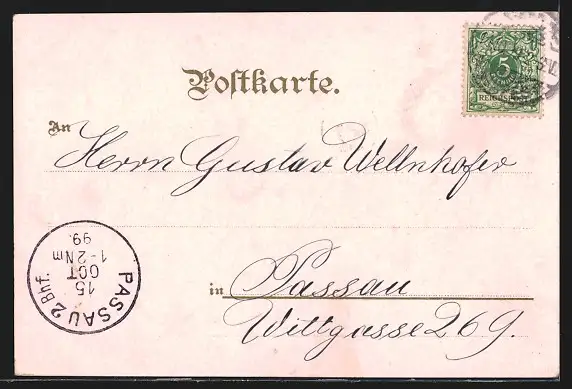 Postkarte.
5
REICHSPOST
An
Herrn Gustav Wellnhofer
in Passau
Wittgasse 269.
PASSAU 2 Bhf.
15
OCT
99.
1-2 Nm